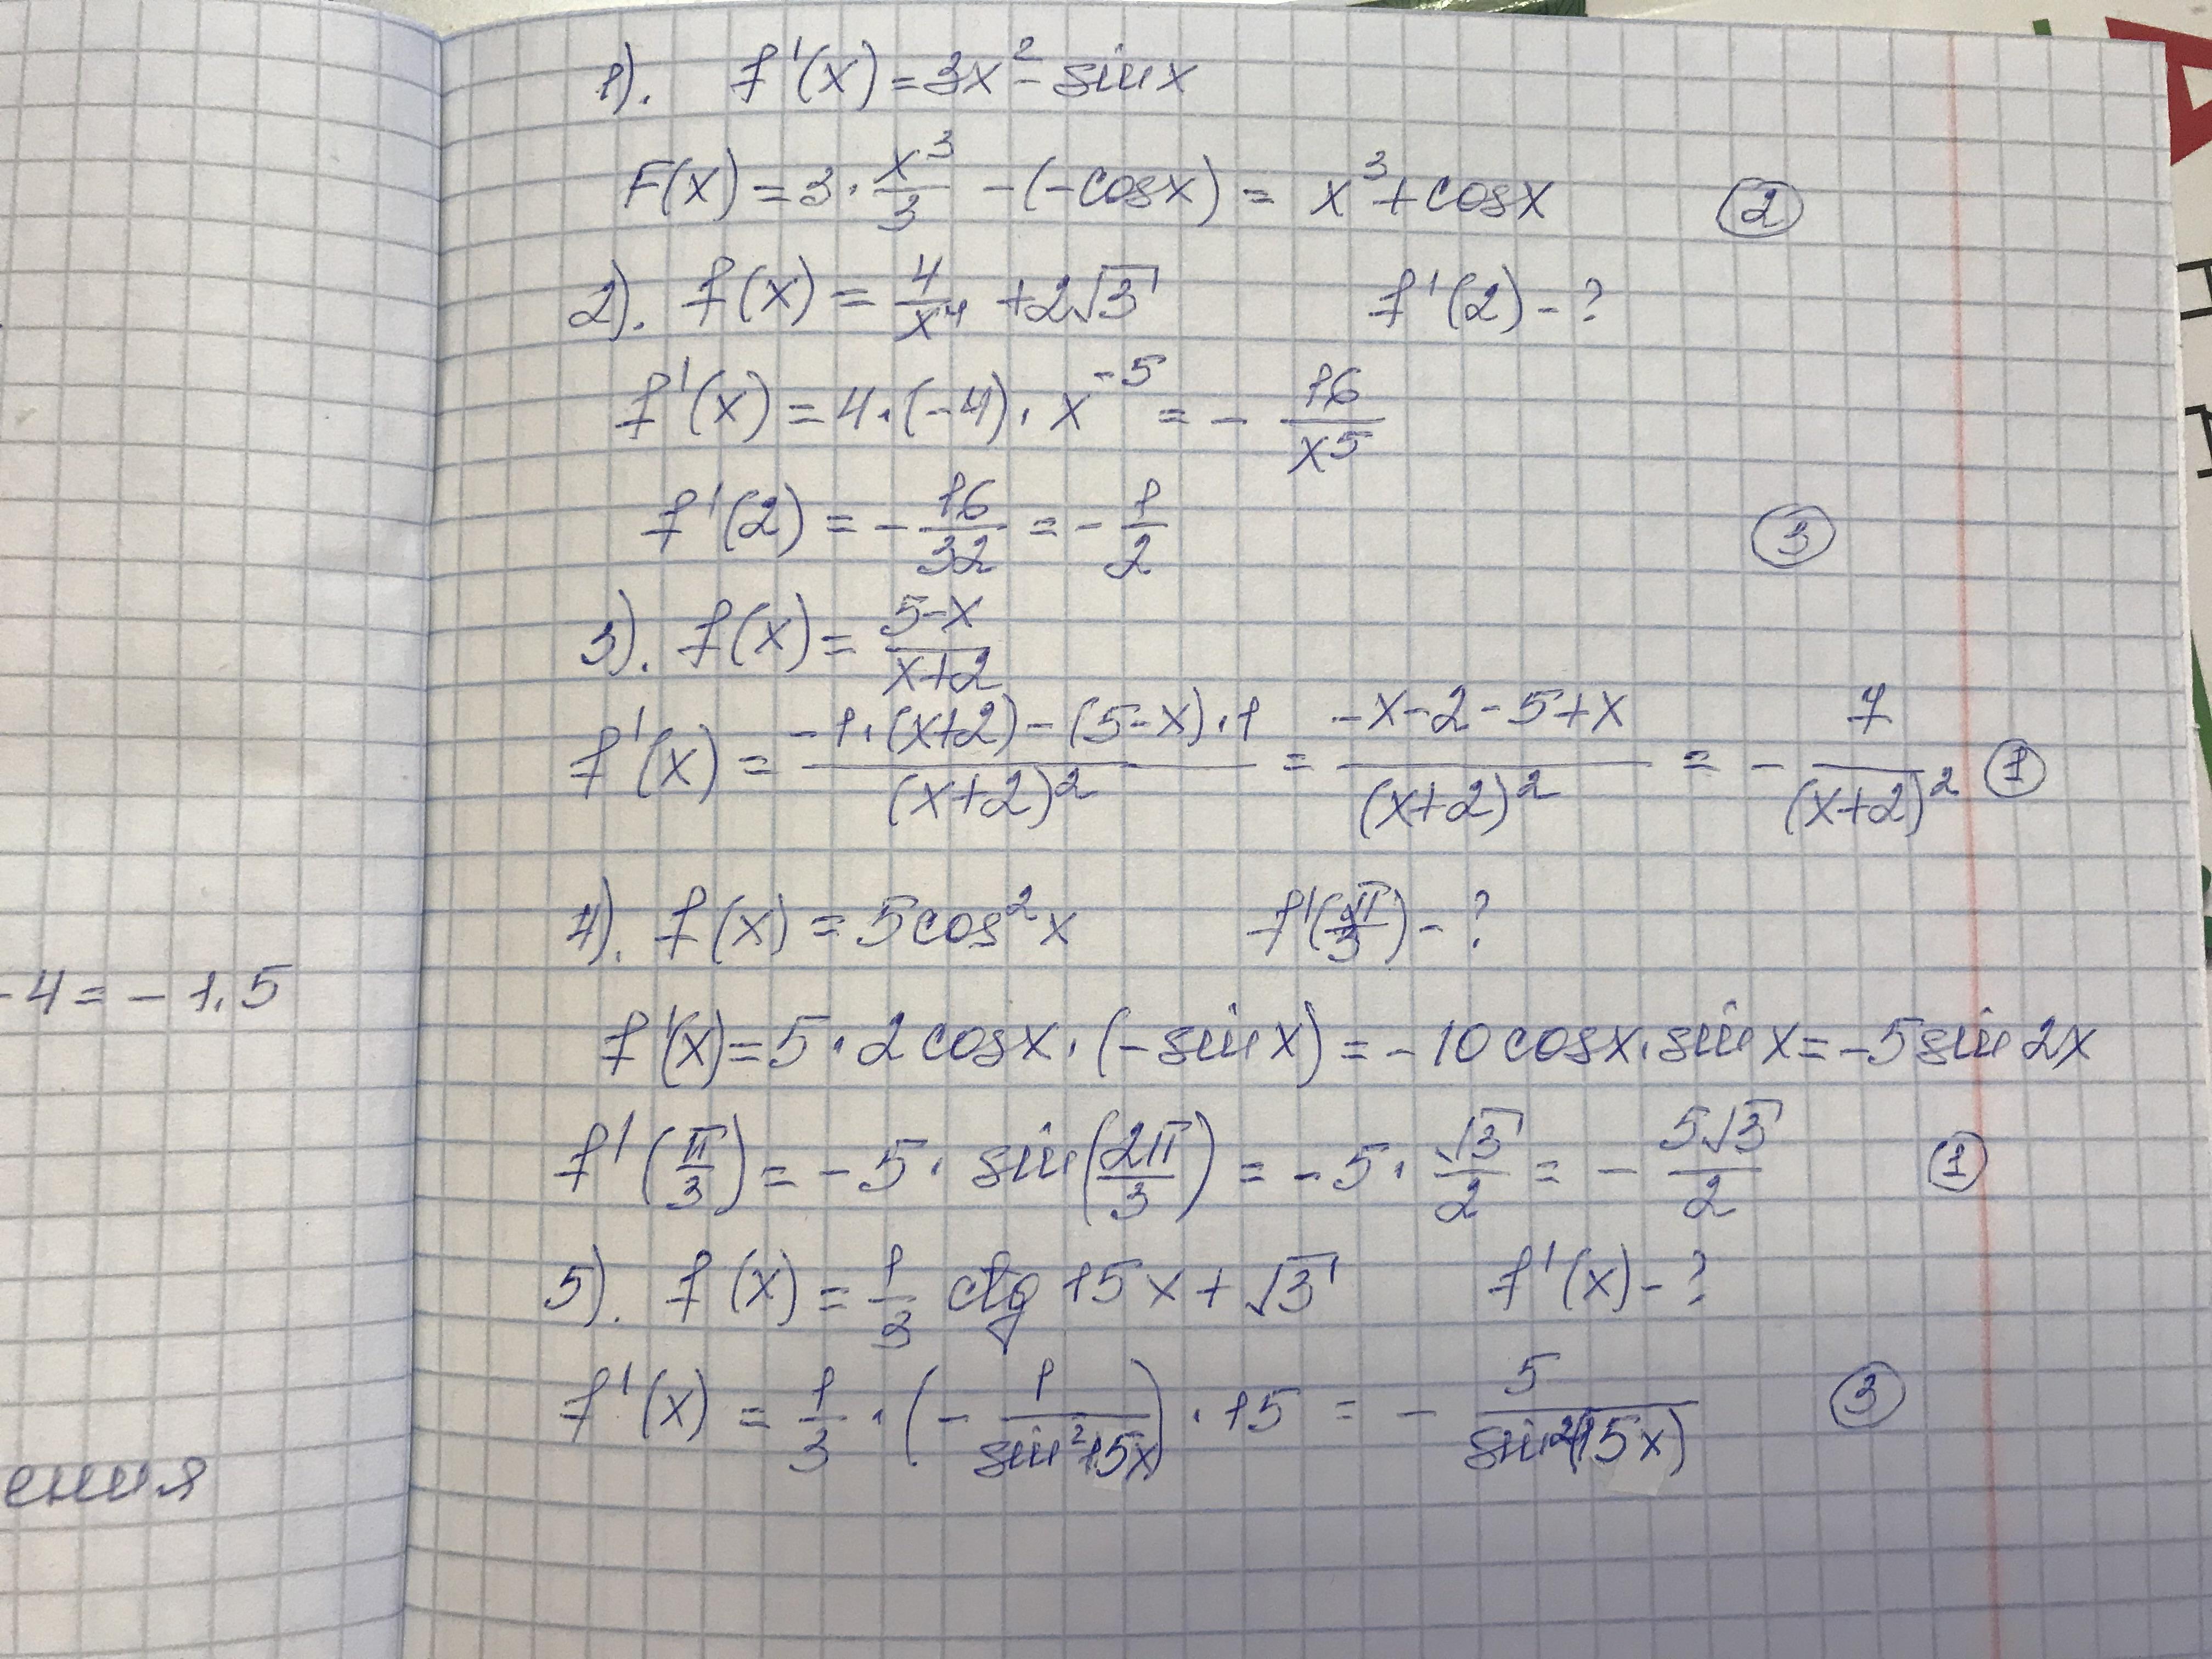 1). f'(x) = 3x² - sin x
F(x) = 3 · x³/3 - (-cos x) = x³ + cos x   2
2). f(x) = 4/x⁴ + 2√3   f'(2) - ?
f'(x) = 4 · (-4) · x⁻⁵ = - 16/x⁵
f'(2) = - 16/32 = - 1/2   3
3). f(x) = (5-x)/(x+2)
f'(x) = (-1·(x+2) - (5-x)·1)/(x+2)² = (-x-2-5+x)/(x+2)² = - 7/(x+2)²   1
4). f(x) = 5cos²x   f'(π/3) - ?
f'(x) = 5 · 2 cos x · (-sin x) = - 10 cos x · sin x = -5 sin 2x
f'(π/3) = - 5 · sin(2π/3) = - 5 · √3/2 = - 5√3/2   1
5). f(x) = 1/3 ctg 15x + √3   f'(x) - ?
f'(x) = 1/3 · (- 1/sin²15x) · 15 = - 5/sin²(15x)   3
-4 = - 1.5
ения